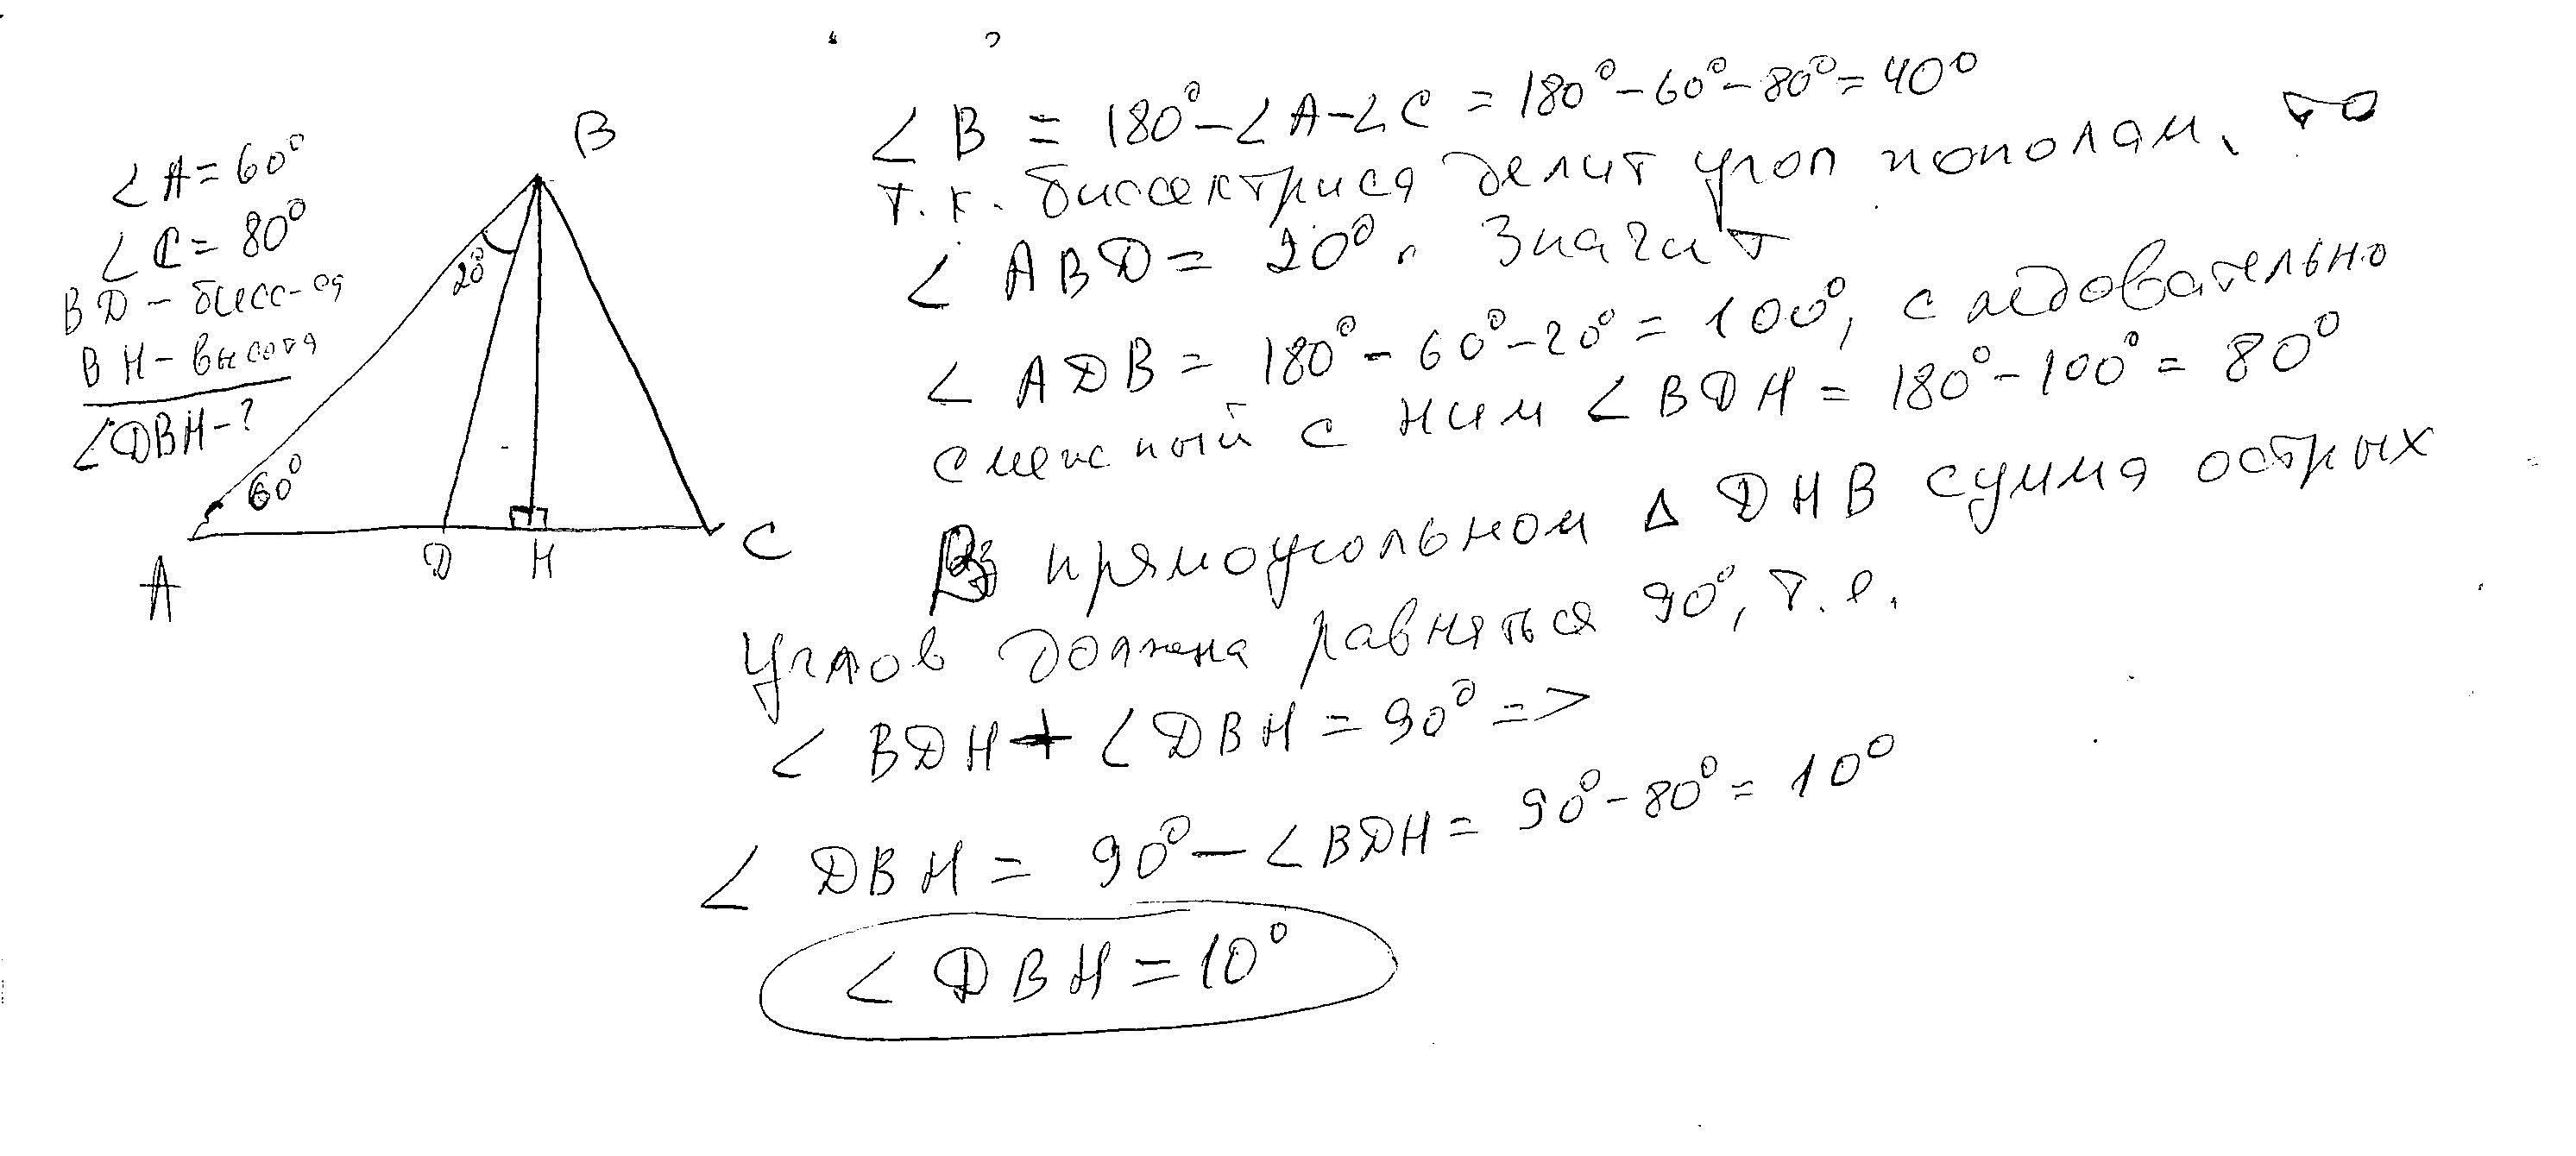 ∠A=60°
∠C=80°
BD-бисс-са
BH-высота
∠DBH-?
B
20°
60°
A
D
H
C
∠B = 180°-∠A-∠C = 180°-60°-80°=40°
т.к. биссектриса делит угол пополам, то
∠ABD = 20°. Значит
∠ADB = 180°-60°-20° = 100°, следовательно
смежный с ним ∠BDH = 180°-100° = 80°
В прямоугольном Δ DHB сумма острых
углов должна равняться 90°, т.е.
∠BDH + ∠DBH = 90° =>
∠DBH = 90° - ∠BDH = 90°-80° = 10°
∠DBH = 10°